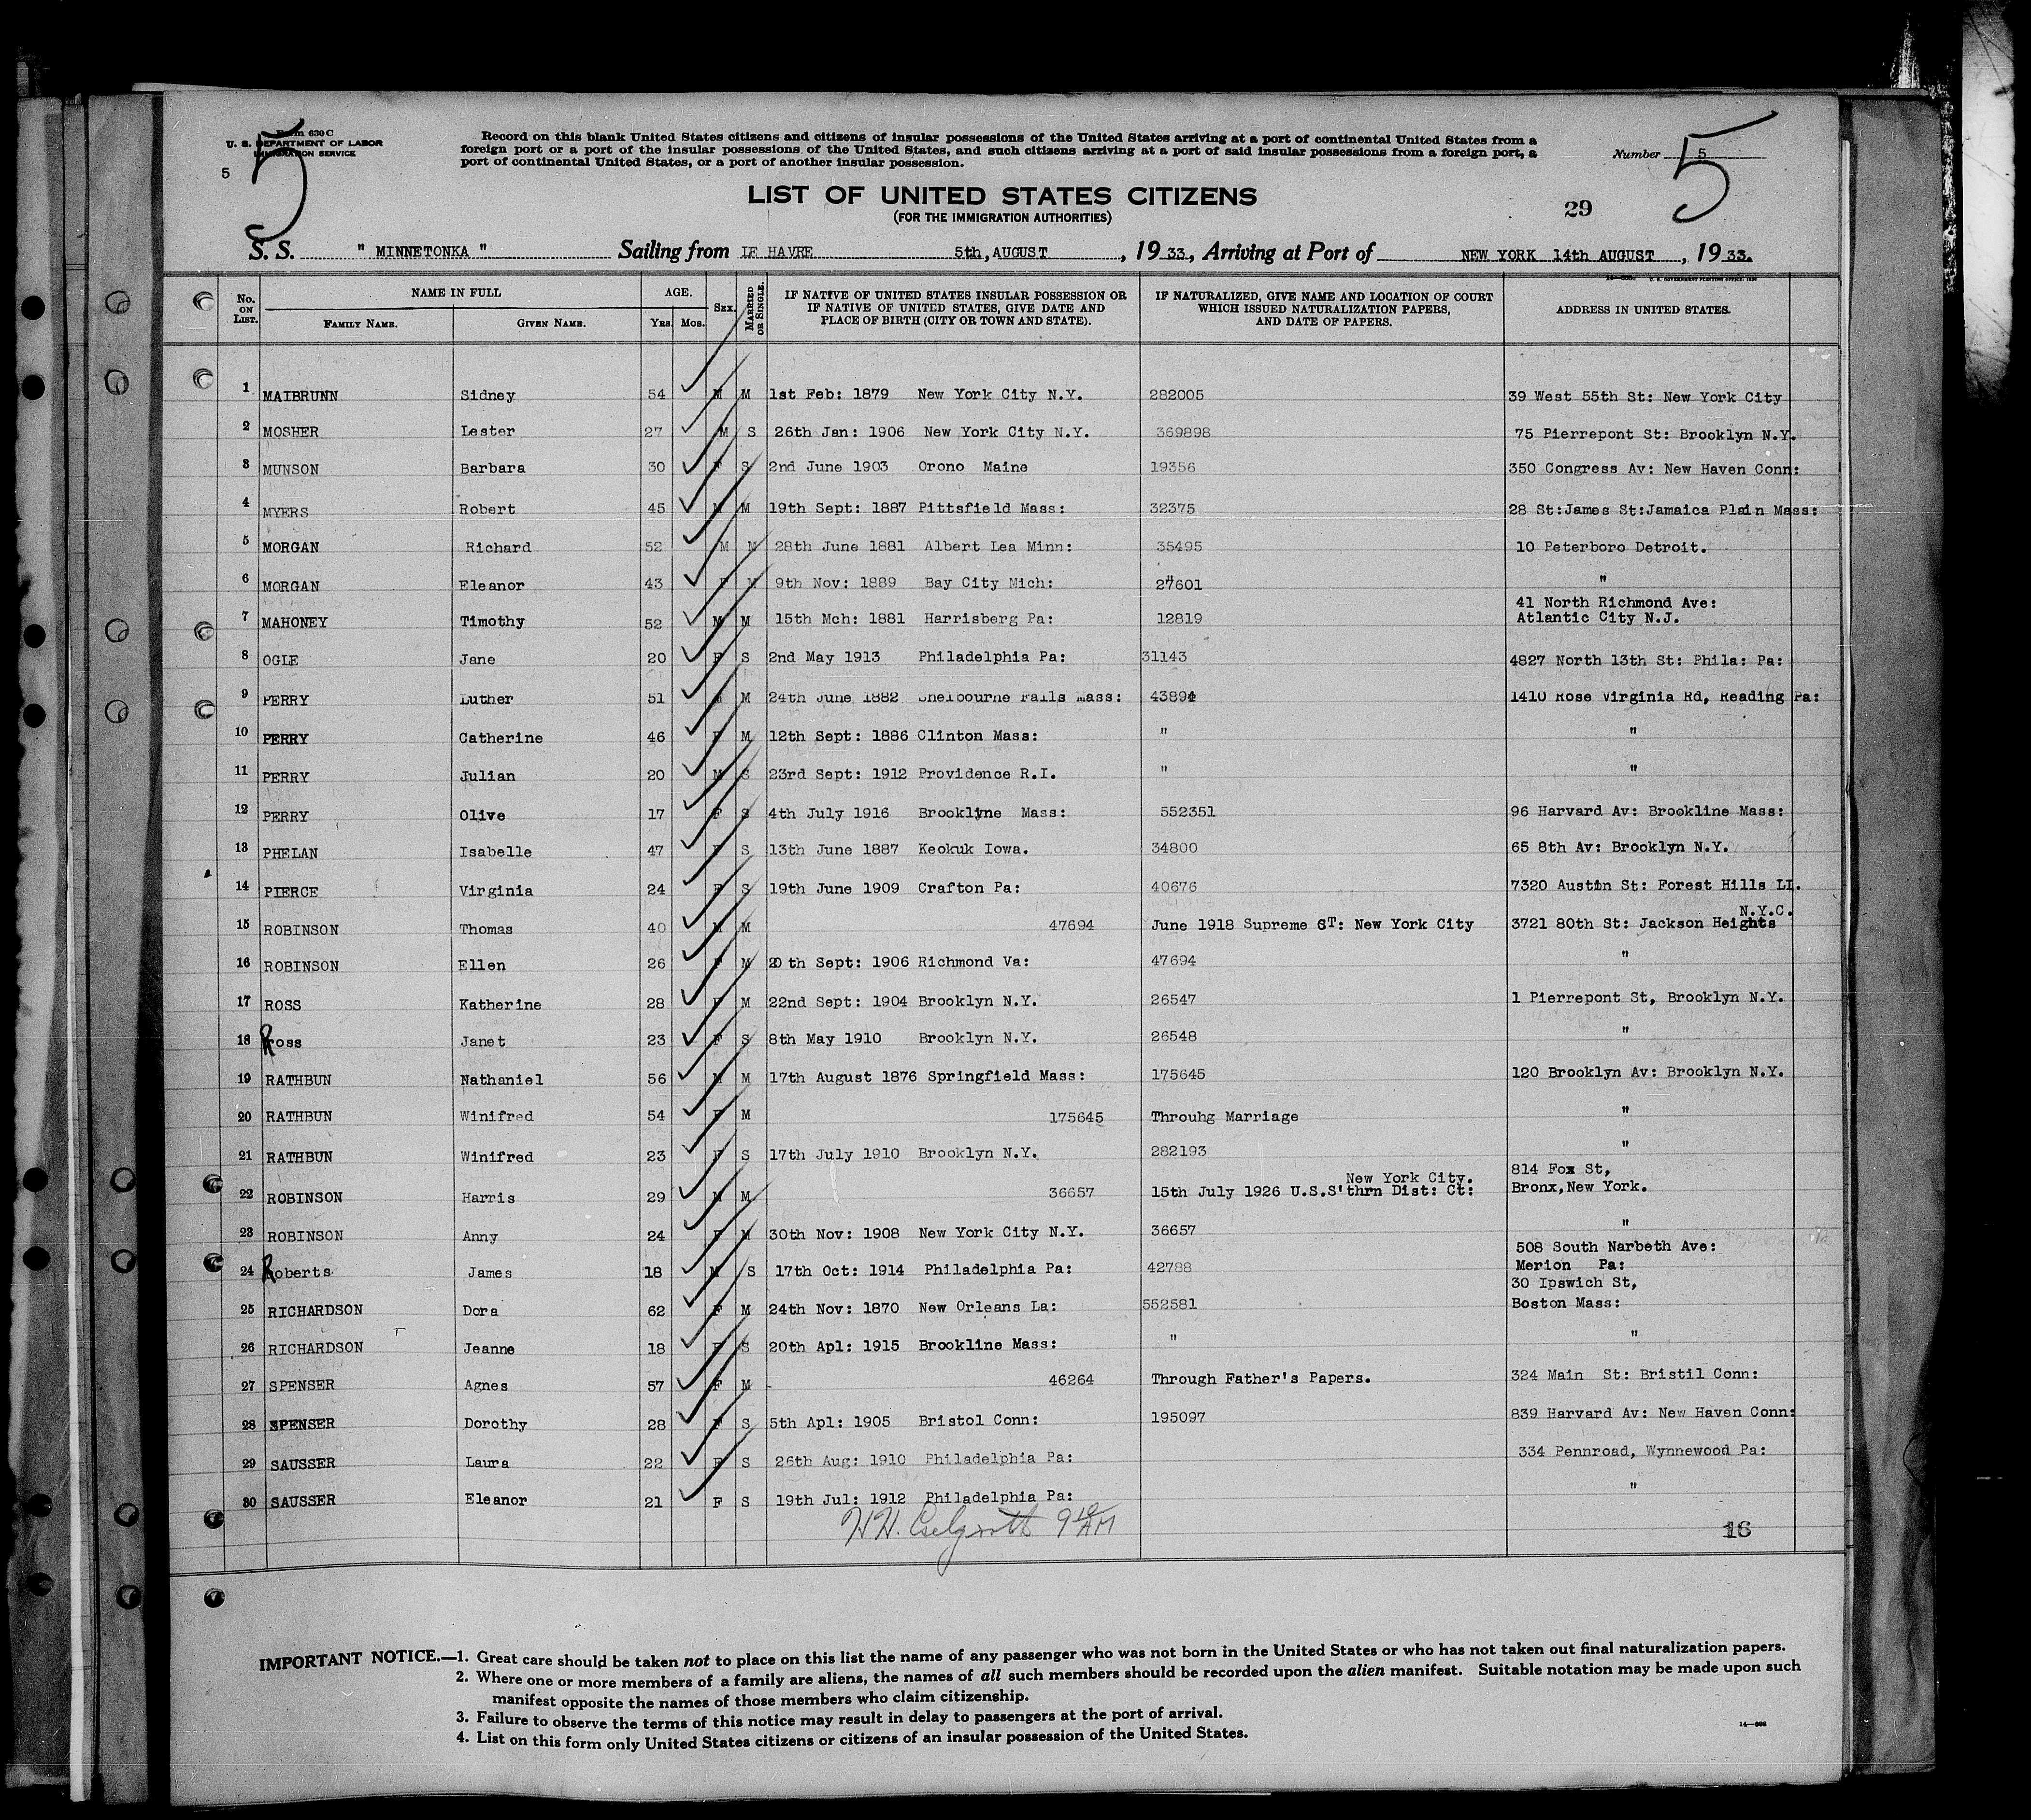 Form 630 C
U. S. DEPARTMENT OF LABOR
IMMIGRATION SERVICE
5
5
Record on this blank United States citizens and citizens of insular possessions of the United States arriving at a port of continental United States from a
foreign port or a port of the insular possessions of the United States, and such citizens arriving at a port of said insular possessions from a foreign port, a
port of continental United States, or a port of another insular possession.
Number 5
5
LIST OF UNITED STATES CITIZENS
(FOR THE IMMIGRATION AUTHORITIES)
29
S. S. " MINNETONKA " Sailing from LE HAVRE 5th, AUGUST , 19 33, Arriving at Port of NEW YORK 14th AUGUST , 19 33.
No. ON LIST. NAME IN FULL FAMILY NAME. GIVEN NAME. AGE. YRS. MOS. SEX. MARRIED OR SINGLE. IF NATIVE OF UNITED STATES INSULAR POSSESSION OR IF NATIVE OF UNITED STATES, GIVE DATE AND PLACE OF BIRTH (CITY OR TOWN AND STATE). IF NATURALIZED, GIVE NAME AND LOCATION OF COURT WHICH ISSUED NATURALIZATION PAPERS, AND DATE OF PAPERS. ADDRESS IN UNITED STATES.
1 MAIBRUNN Sidney 54 M M 1st Feb: 1879 New York City N.Y. 282005 39 West 55th St: New York City
2 MOSHER Lester 27 M S 26th Jan: 1906 New York City N.Y. 369898 75 Pierrepont St: Brooklyn N.Y.
3 MUNSON Barbara 30 F S 2nd June 1903 Orono Maine 19356 350 Congress Av: New Haven Conn:
4 MYERS Robert 45 M M 19th Sept: 1887 Pittsfield Mass: 32375 28 St:James St:Jamaica Plain Mass:
5 MORGAN Richard 52 M M 28th June 1881 Albert Lea Minn: 35495 10 Peterboro Detroit.
6 MORGAN Eleanor 43 F M 9th Nov: 1889 Bay City Mich: 27601 "
7 MAHONEY Timothy 52 M M 15th Mch: 1881 Harrisberg Pa: 12819 41 North Richmond Ave: Atlantic City N.J.
8 OGLE Jane 20 F S 2nd May 1913 Philadelphia Pa: 31143 4827 North 13th St: Phila: Pa:
9 PERRY Luther 51 M M 24th June 1882 Shelbourne Falls Mass: 43894 1410 Rose Virginia Rd, Reading Pa:
10 PERRY Catherine 46 F M 12th Sept: 1886 Clinton Mass: " "
11 PERRY Julian 20 M S 23rd Sept: 1912 Providence R.I. " "
12 PERRY Olive 17 F S 4th July 1916 Brooklyne Mass: 552351 96 Harvard Av: Brookline Mass:
13 PHELAN Isabelle 47 F S 13th June 1887 Keokuk Iowa. 34800 65 8th Av: Brooklyn N.Y.
14 PIERCE Virginia 24 F S 19th June 1909 Crafton Pa: 40676 7320 Austin St: Forest Hills LI.
N.Y.C.
15 ROBINSON Thomas 40 M M 47694 June 1918 Supreme CT: New York City 3721 80th St: Jackson Heights
16 ROBINSON Ellen 26 F M 20th Sept: 1906 Richmond Va: 47694 "
17 ROSS Katherine 28 F M 22nd Sept: 1904 Brooklyn N.Y. 26547 1 Pierrepont St, Brooklyn N.Y.
18 Ross Janet 23 F S 8th May 1910 Brooklyn N.Y. 26548 "
19 RATHBUN Nathaniel 56 M M 17th August 1876 Springfield Mass: 175645 120 Brooklyn Av: Brooklyn N.Y.
20 RATHBUN Winifred 54 F M 175645 Throuhg Marriage "
21 RATHBUN Winifred 23 F S 17th July 1910 Brooklyn N.Y. 282193 "
22 ROBINSON Harris 29 M M 36657 15th July 1926 U.S.S'thrn Dist: Ct: New York City. 814 Fox St, Bronx,New York.
23 ROBINSON Anny 24 F M 30th Nov: 1908 New York City N.Y. 36657 "
24 Roberts James 18 M S 17th Oct: 1914 Philadelphia Pa: 42788 508 South Narbeth Ave: Merion Pa:
25 RICHARDSON Dora 62 F M 24th Nov: 1870 New Orleans La: 552581 30 Ipswich St, Boston Mass:
26 RICHARDSON Jeanne 18 F S 20th Apl: 1915 Brookline Mass: " "
27 SPENSER Agnes 57 F M 46264 Through Father's Papers. 324 Main St: Bristil Conn:
28 SPENSER Dorothy 28 F S 5th Apl: 1905 Bristol Conn: 195097 839 Harvard Av: New Haven Conn:
29 SAUSSER Laura 22 F S 26th Aug: 1910 Philadelphia Pa: 334 Pennroad, Wynnewood Pa:
30 SAUSSER Eleanor 21 F S 19th Jul: 1912 Philadelphia Pa: "
H.H. 9 10 AM
16
IMPORTANT NOTICE.—1. Great care should be taken not to place on this list the name of any passenger who was not born in the United States or who has not taken out final naturalization papers.
2. Where one or more members of a family are aliens, the names of all such members should be recorded upon the alien manifest. Suitable notation may be made upon such
manifest opposite the names of those members who claim citizenship.
3. Failure to observe the terms of this notice may result in delay to passengers at the port of arrival.
4. List on this form only United States citizens or citizens of an insular possession of the United States.